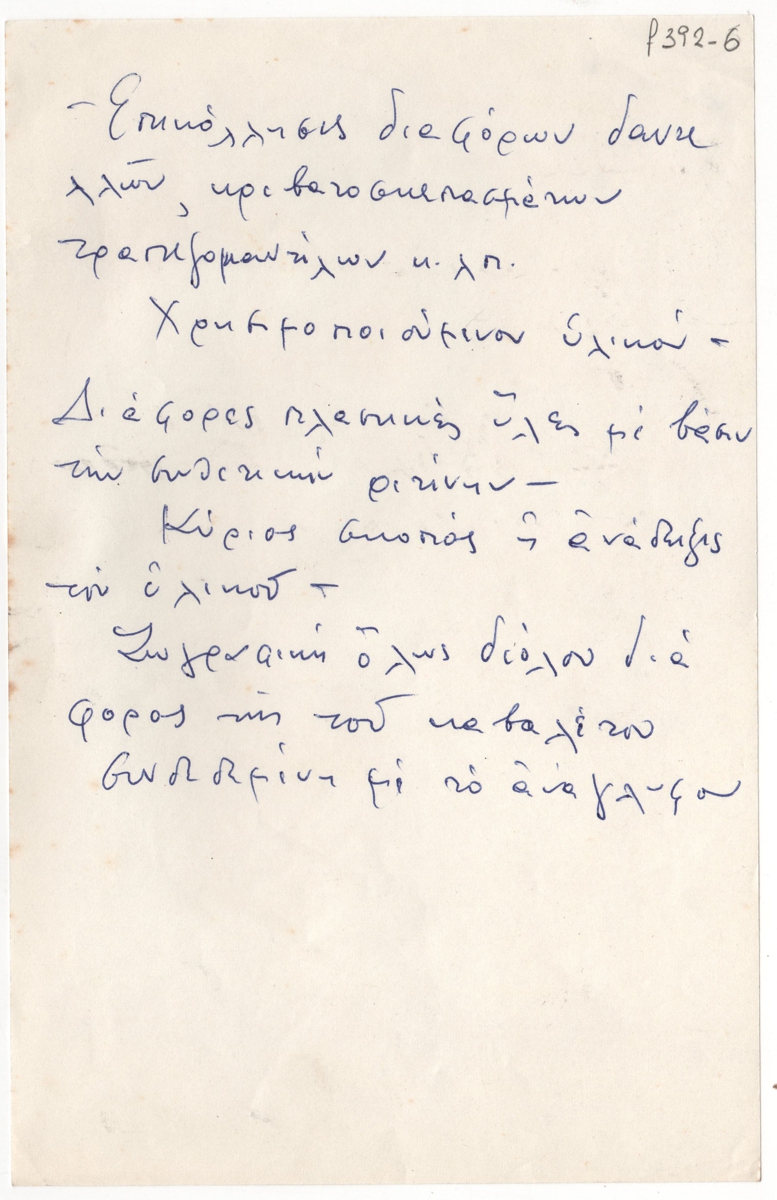 f392-6
- Επικόλλησις διαφόρων δαντε
λλῶν, κρεβατοσκεπασμάτων
τραπεζομαντήλων κ.λπ.
Χρησιμοποιούμενον ὑλικόν -
Διάφορες πλαστικές ὕλες μέ βάσιν
τήν συνθετικήν ρετίνην -
Κύριος σκοπός ἡ ἀνάδειξις
τοῦ ὑλικοῦ -
Ζωγραφική ὅλως διόλου διά
φορος τῆς τοῦ καβαλέτου
συνδεδεμένη μέ τό ἀνάγλυφον